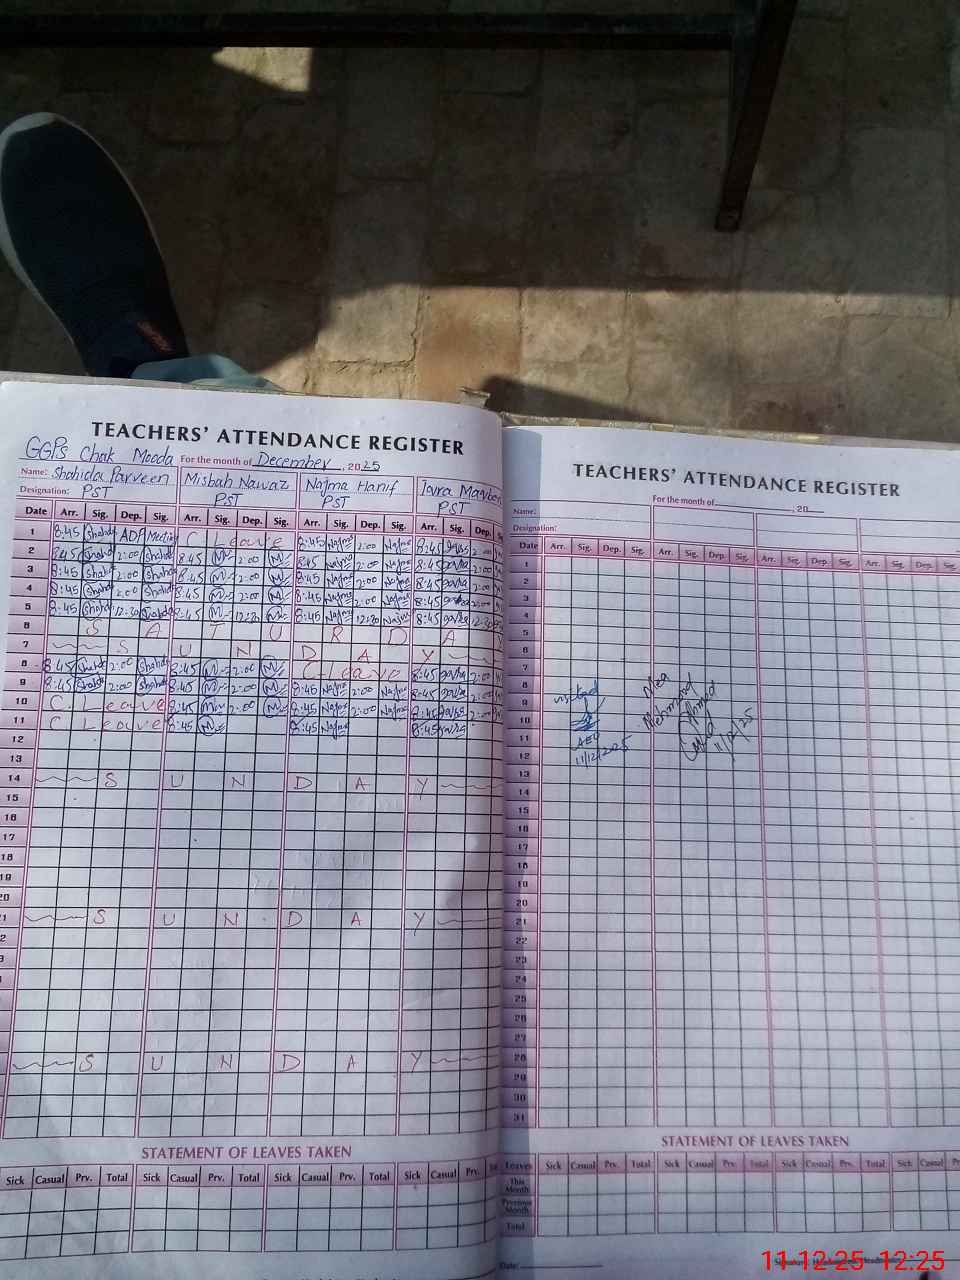 TEACHERS' ATTENDANCE REGISTER
GGPS Chak Mooda For the month of December, 2025
Name: Shahida Parveen Misbah Nawaz Najma Hanif Iqra
Designation: PST PST PST PST
Date Arr. Sig. Dep. Sig. Arr. Sig. Dep. Sig. Arr. Sig. Dep. Sig. Arr. Sig. Dep.
1 8:45 Shahida ADP Meeting C Leave 8:45 Najma 2:00 Najma 8:45 2:00
2 8:45 Shahida 2:00 Shahida 8:45 M 2:00 M 8:45 Najma 2:00 Najma 8:45 2:00
3 8:45 Shahida 2:00 Shahida 8:45 M 2:00 M 8:45 Najma 2:00 Najma 8:45 2:00
4 8:45 Shahida 2:00 Shahida 8:45 M 2:00 M 8:45 Najma 2:00 Najma 8:45 2:00
5 8:45 Shahida 12:30 Shahida 8:45 M 12:30 M 8:45 Najma 12:30 Najma 8:45 12:30
6 S A T U R D A Y
7 S U N D A Y
8 8:45 Shahida 2:00 Shahida 8:45 M 2:00 M C Leave 8:45 2:00
9 8:45 Shahida 2:00 Shahida 8:45 M 2:00 M 8:45 Najma 2:00 Najma 8:45 2:00
10 C Leave 8:45 M 2:00 M 8:45 Najma 2:00 Najma 8:45 2:00
11 C Leave 8:45 M 8:45 Najma 8:45
12
13
14 S U N D A Y
15
16
17
18
19
20
21 S U N D A Y
S U N D A Y
STATEMENT OF LEAVES TAKEN
Sick Casual Prv. Total Sick Casual Prv. Total Sick Casual Prv. Total Sick Casual Prv.
TEACHERS' ATTENDANCE REGISTER
For the month of , 20
Name:
Designation:
Date Arr. Sig. Dep. Sig. Arr. Sig. Dep. Sig. Arr. Sig. Dep. Sig. Arr. Sig. Dep.
1
2
3
4
5
6
7
8
9 visited
10
11 AEO
12 11/12/2025
Mea
Mehmood Ahmed
11/12/25
13
14
15
16
17
18
19
20
21
22
23
24
25
26
27
28
29
30
31
STATEMENT OF LEAVES TAKEN
Leaves Sick Casual Prv. Total Sick Casual Prv. Total Sick Casual Prv. Total Sick Casual
This Month
Previous Month
Total
Date:
11-12-25 12:25